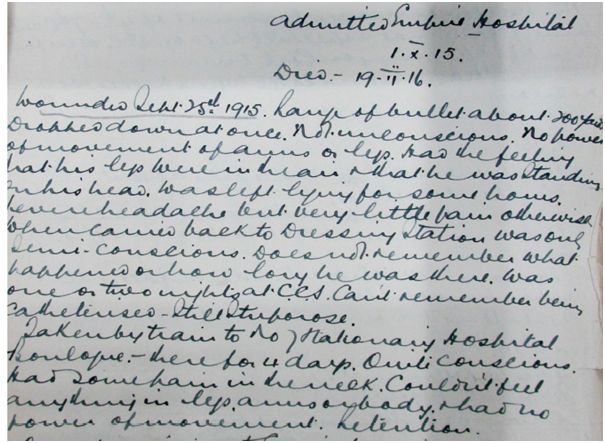 Admitted Empire Hospital
1.X.15.
Died - 19-II-16.
Wounded Sept. 25th 1915. Range of bullet about 200 yds.
Dropped down at once. Not unconscious. No power
of movement of arms or legs. Had the feeling
that his legs were in the air & that he was standing
on his head. Was left lying for some hours.
Severe headache but very little pain otherwise
When carried back to Dressing Station was only
semi-conscious. Does not remember what
happened or how long he was there. Was
one or two nights at C.C.S. Can't remember being
catheterised - still stuporose.
Taken by train to No 7 Stationary Hospital
Boulogne - there for 4 days. Quite conscious.
Had some pain in the neck. Couldn't feel
anything in legs, arms or body & had no
power of movement. Retention.